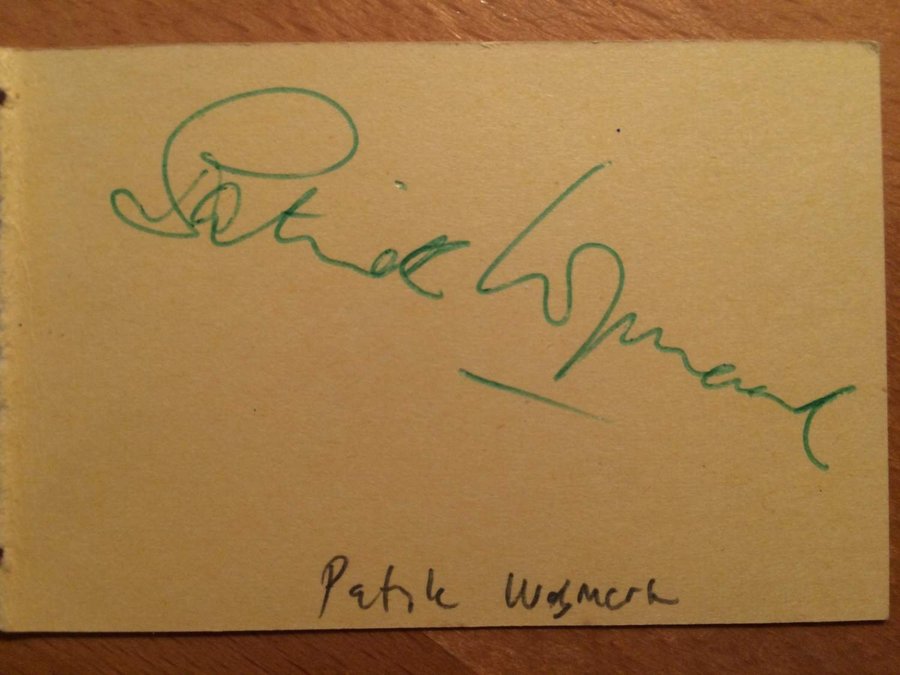 Patrick Wymark
Patrik Wymark